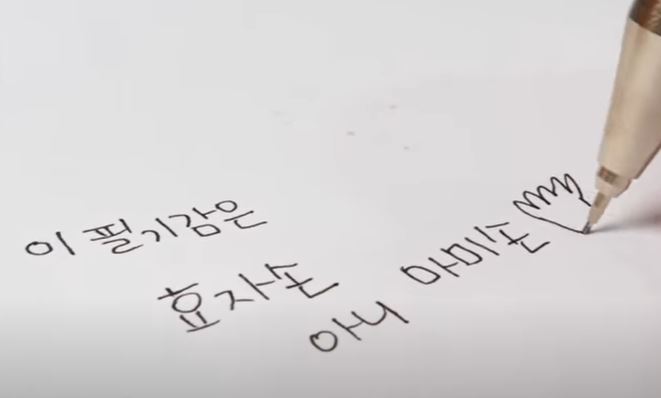 이 필기감은
효자손
아니 마미손